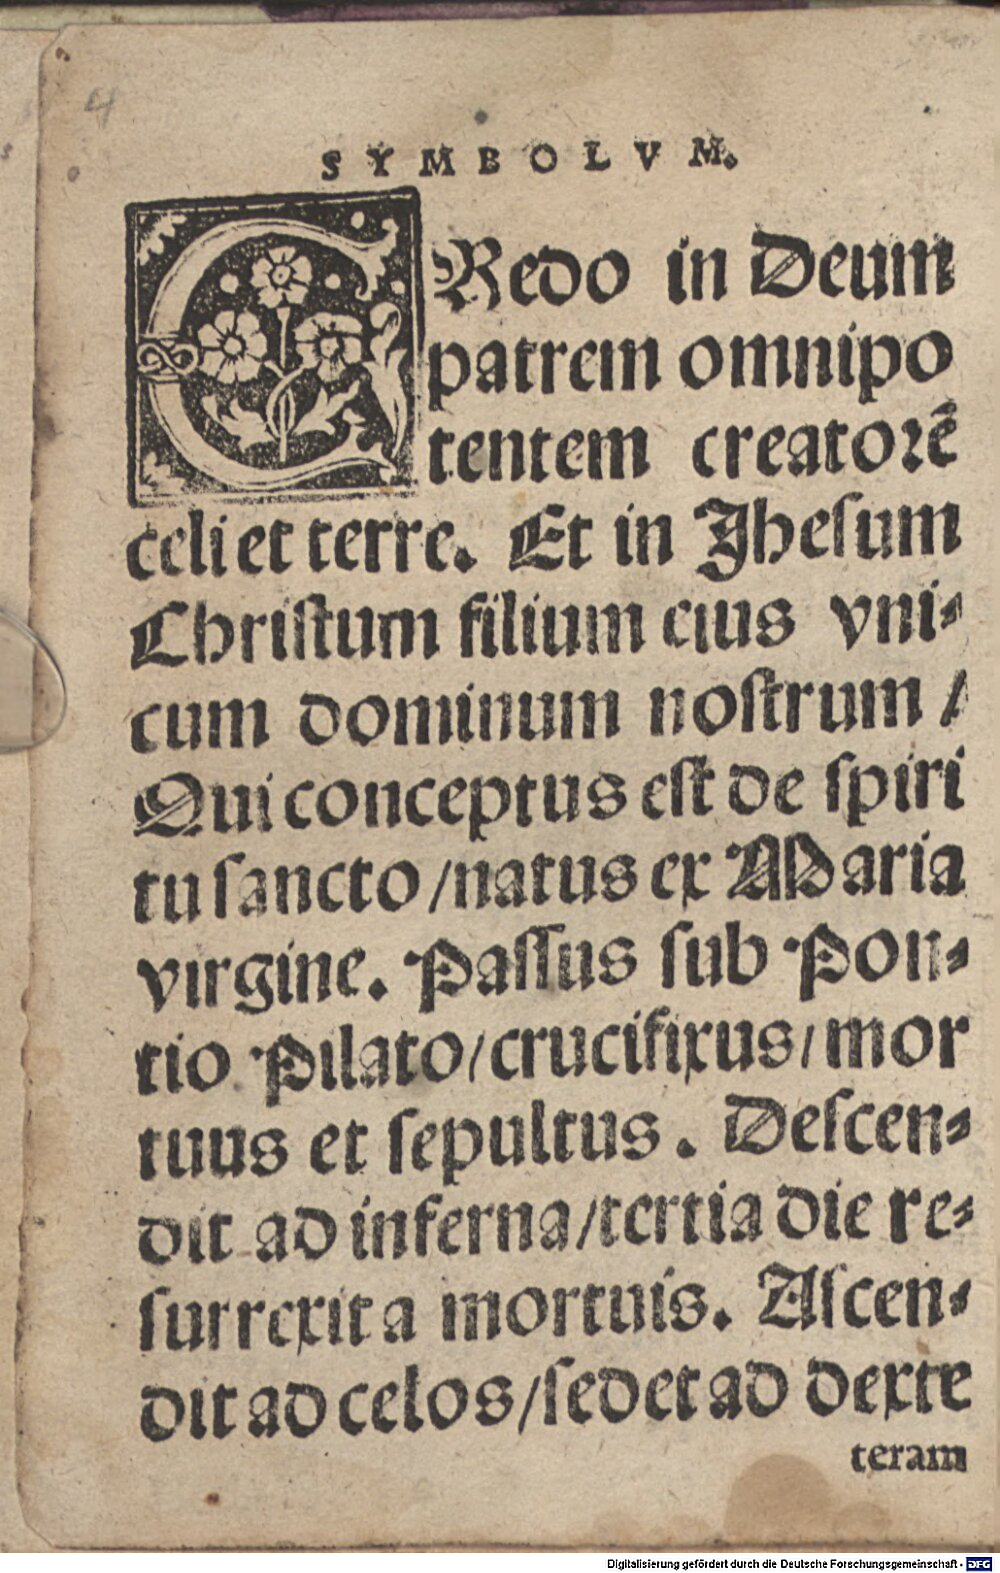 4
SYMBOLVM.
CRedo in Deum
patrem omnipo
tentem creatorē
celi et terre. Et in Jhesum
Christum filium eius vni⸗
cum dominum nostrum /
Qui conceptus est de spiri
tu sancto/natus ex Maria
virgine. Passus sub Pon⸗
tio Pilato/crucifixus/mor
tuus et sepultus. Descen⸗
dit ad inferna/tertia die re⸗
surrexit a mortuis. Ascen⸗
dit ad celos/sedet ad dexte
teram
Digitalisierung gefördert durch die Deutsche Forschungsgemeinschaft - DFG